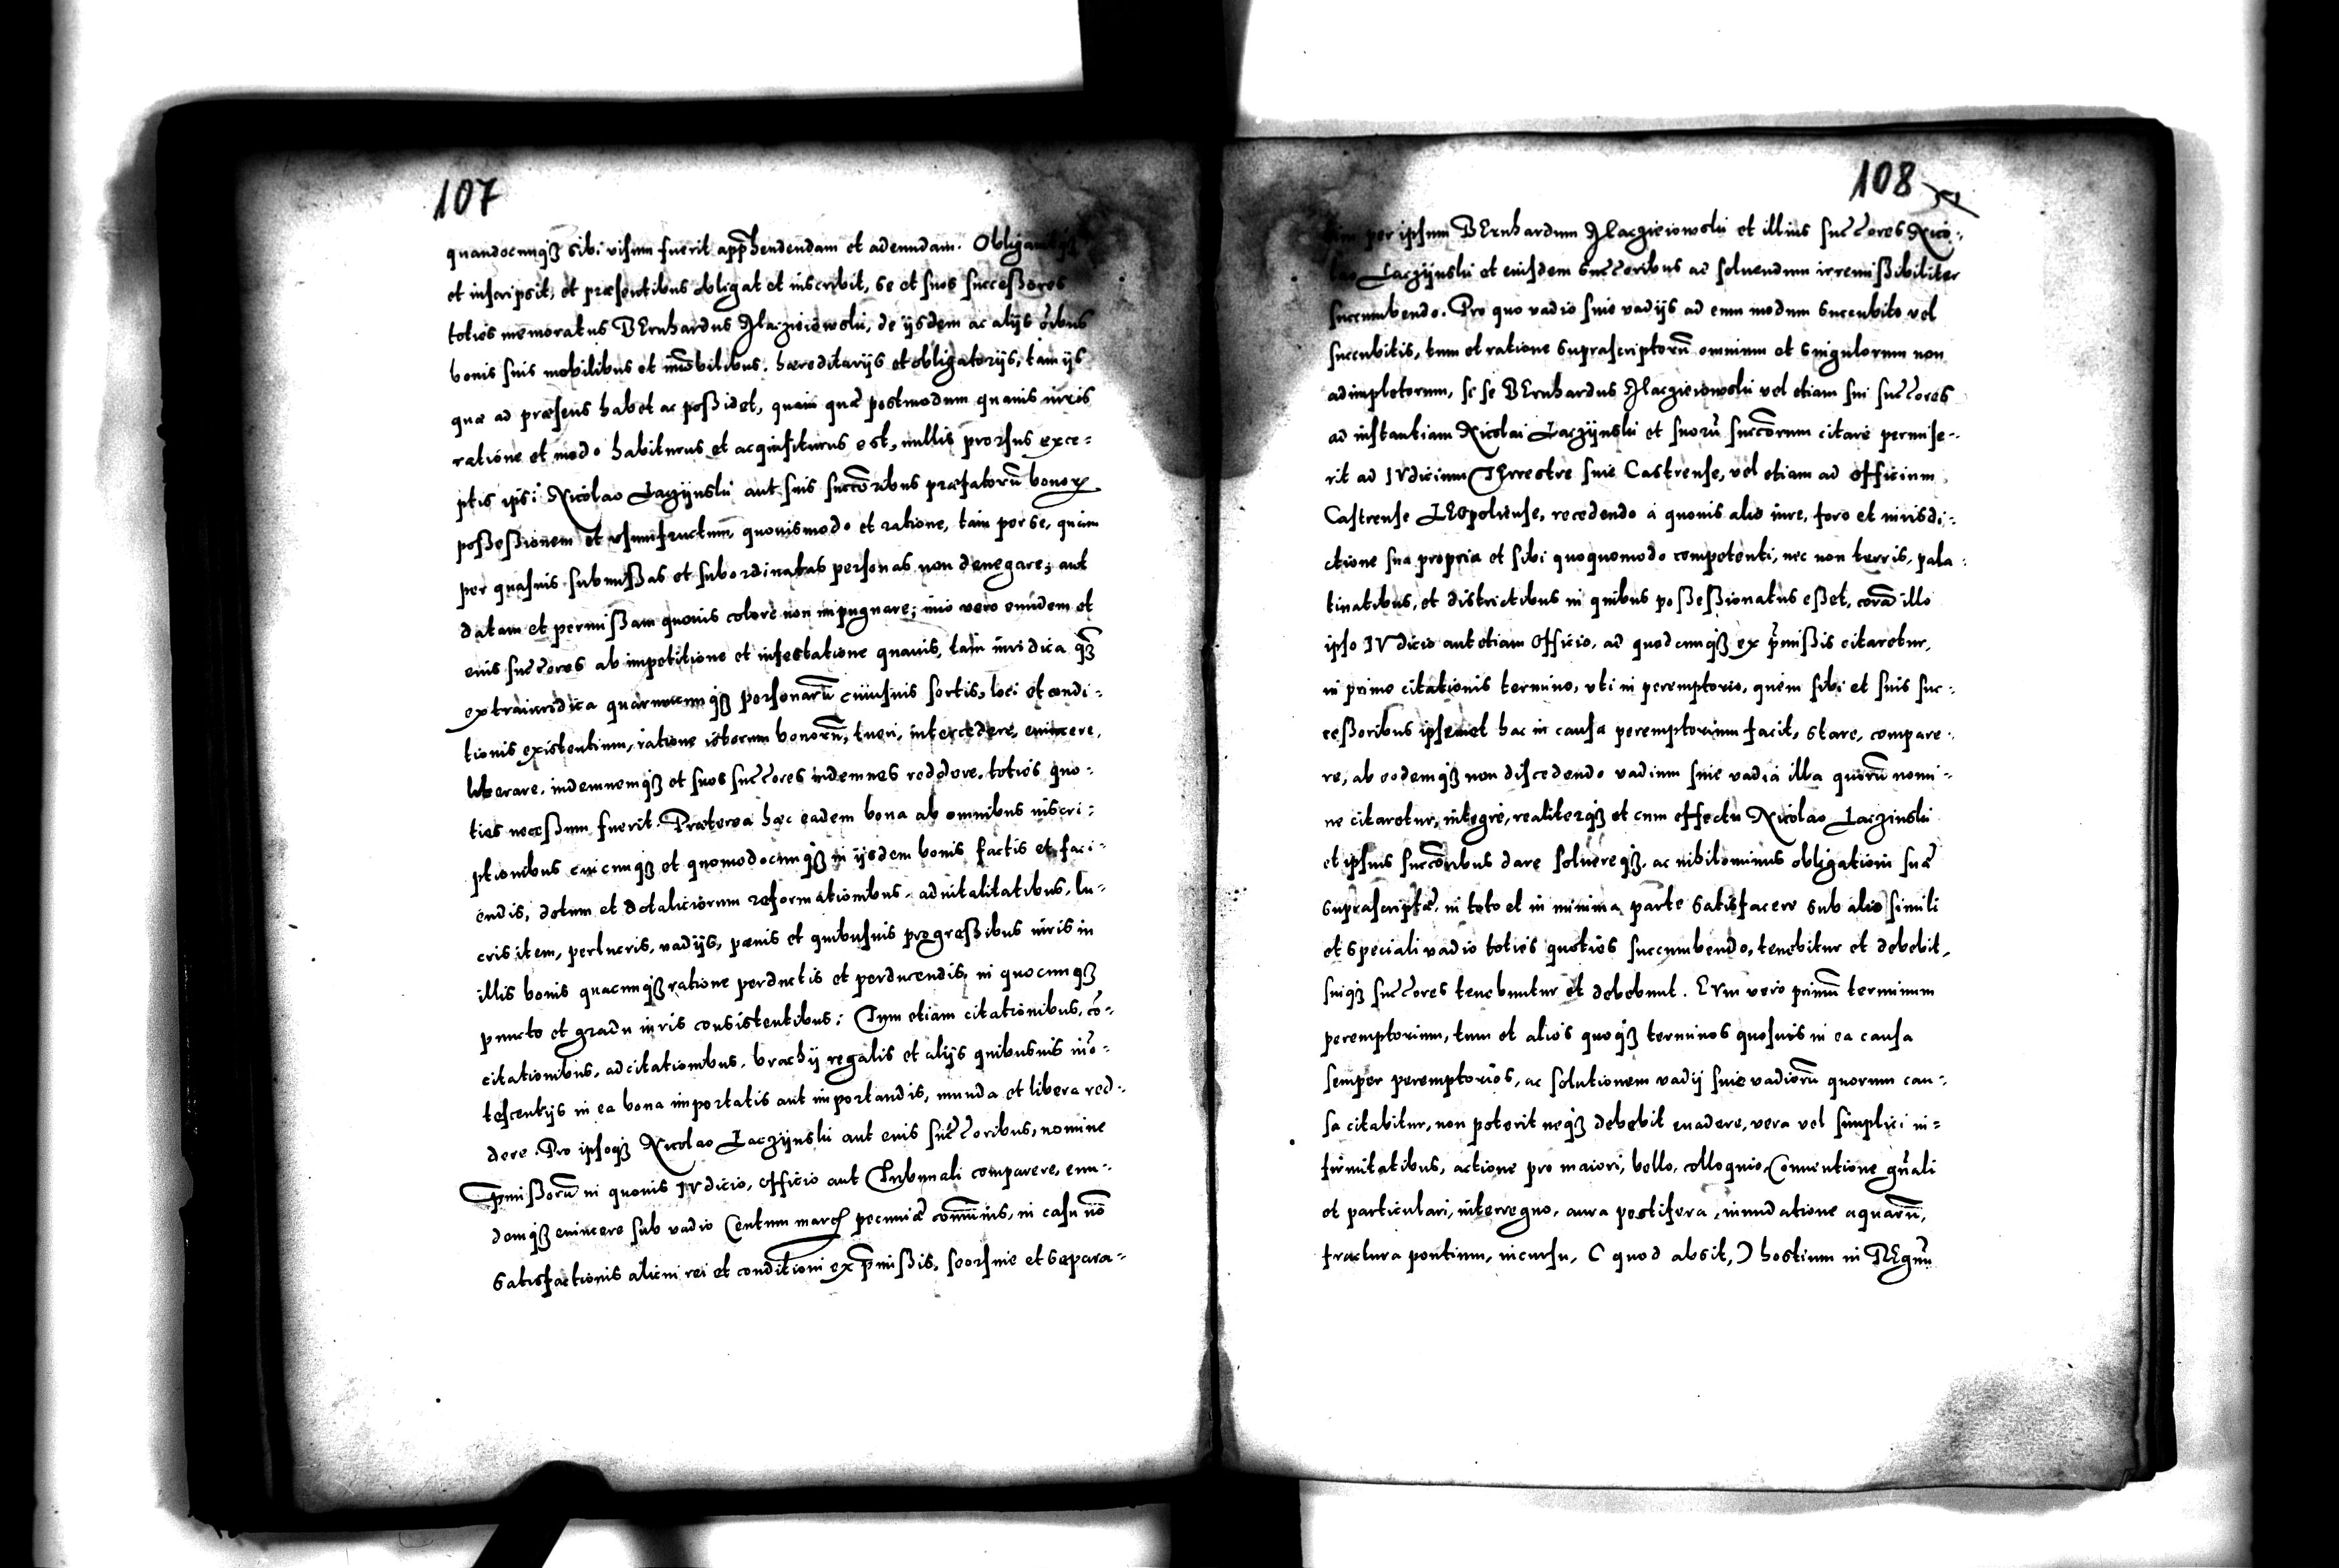 107
quandocunqȝ sibi visum fuerit appͬhendendam et adeundam. Obligauitqȝ
et inscripsit, et præsentibus obligat et inscribit, se et suos successores
toties memoratus BErnhardus Maczieiowski, de ijsdem ac alijs oı̅bus
bonis suis mobilibus et im̅obilibus, hæreditarijs et obligatorijs, tam ijs
quæ ad præsens habet ac possidet, quam quæ postmodum quauis iuris
ratione et modo habiturus et acquisiturus est, nullis prorsus exce-
ptis ipsi Nicolao Laczijnski aut suis succ̅oribus præfatoru̅ bonoꝝ
possessionem et vsumfructum, quouismodo et ratione, tam per se, quàm
per quasuis submissas et subordinatas personas non denegare; aut
datam et permissam quouis colore non impugnare; imo vero eundem et
eius succ̅ores ab impetitione et infestatione quauis, tam iuridica qȝ̅
extraiuridica quarumcunqȝ personaru̅ cuiusuis sortis, loci et condi-
tionis existentium, ratione istorum bonoru̅, tueri, intercedere, euincere,
liberare, indemnemqȝ et suos succ̅ores indemnes reddere, toties quo-
ties necessum fuerit. Præterea hæc eadem bona ab omnibus inscri-
ptionibus cuicunqȝ et quomodocunqȝ in ijsdem bonis factis et faci-
endis, dotum et dotaliciorum reformationibus, aduitalitatibus, lu-
cris item, perlucris, vadijs, pænis et quibusuis progressibus iuris in
illis bonis quacunqȝ ratione perductis et perducendis, in quocunqȝ
puncto et gradu iuris consistentibus; Tum etiam citationibus, co̅-
citationibus, adcitationibus, brachij regalis et alijs quibusuis in̅o-
tescentijs in ea bona importatis aut importandis, munda et libera red-
dere. Pro ipsoqȝ Nicolao Laczijnski aut eius succ̅oribus, nomine
p̅missoru̅ in quouis IVdicio, officio aut Tribunali comparere, eun-
demqȝ euincere sub vadio Centum març pecuniæ com̅unis, in casu no̅
satisfactionis alicui rei et conditioni ex p̅missis, seorsiue et separa-
108
per ipsum BErnhardum Maczieiowski et illius succ̅ores Nico-
lao Laczijnski et eiusdem succ̅oribus ad soluendum irremissibiliter
succumbendo. Pro quo vadio siue vadijs ad eum modum succubito vel
succubitis, tum et ratione suprascriptoru̅ omnium et singulorum non
adimpletorum, si se BErnhardus Maczieiowski vel etiam sui succ̅ores
ad instantiam Nicolai Laczijnski et suoru̅ succ̅orum citare permise-
rit ad IVdicium TErrestre siue Castrense, vel etiam ad officium
Castrense LEOpoliense, recedendo à quouis alio iure, foro et iurisdi-
ctione sua propria et sibi quoquomodo competenti, nec non terris, pala-
tinatibus, et districtibus in quibus possessionatus esset, cora̅ illo
ipso IVdicio aut etiam Officio, ad quodcunqȝ ex p̅missis citaretur,
in primo citationis termino, vti in peremptorio, quem sibi et suis suc-
cessoribus ipsemet hac in causa peremptorium facit, stare, compare-
re, ab eodemqȝ non discedendo vadium siue vadia illa quoru̅ nomi-
ne citaretur, integrè, realiterqȝ et cum effectu Nicolao Laczinski
et ipsius succ̅oribus dare soluereqȝ, ac nihilominus obligationi suæ
suprascriptæ, in toto et in minima parte satisfacere sub alio simili
et speciali vadio toties quoties succumbendo, tenebitur et debebit,
suiqȝ succ̅ores tenebuntur et debebunt. EVm vero primu̅ terminum
peremptorium, tum et alios quoqȝ terminos quosuis in ea causa
semper peremptorios, ac solutionem vadij siue vadioru̅ quorum cau-
sa citabitur, non poterit neqȝ debebit euadere, vera vel simplici in-
firmitatibus, actione pro maiori, bello, colloquio, Conuentione gn̅ali
et particulari, interregno, aura pestifera, inundatione aquaru̅,
fractura pontium, incursu, ( quod absit, ) hostium in REgnu̅